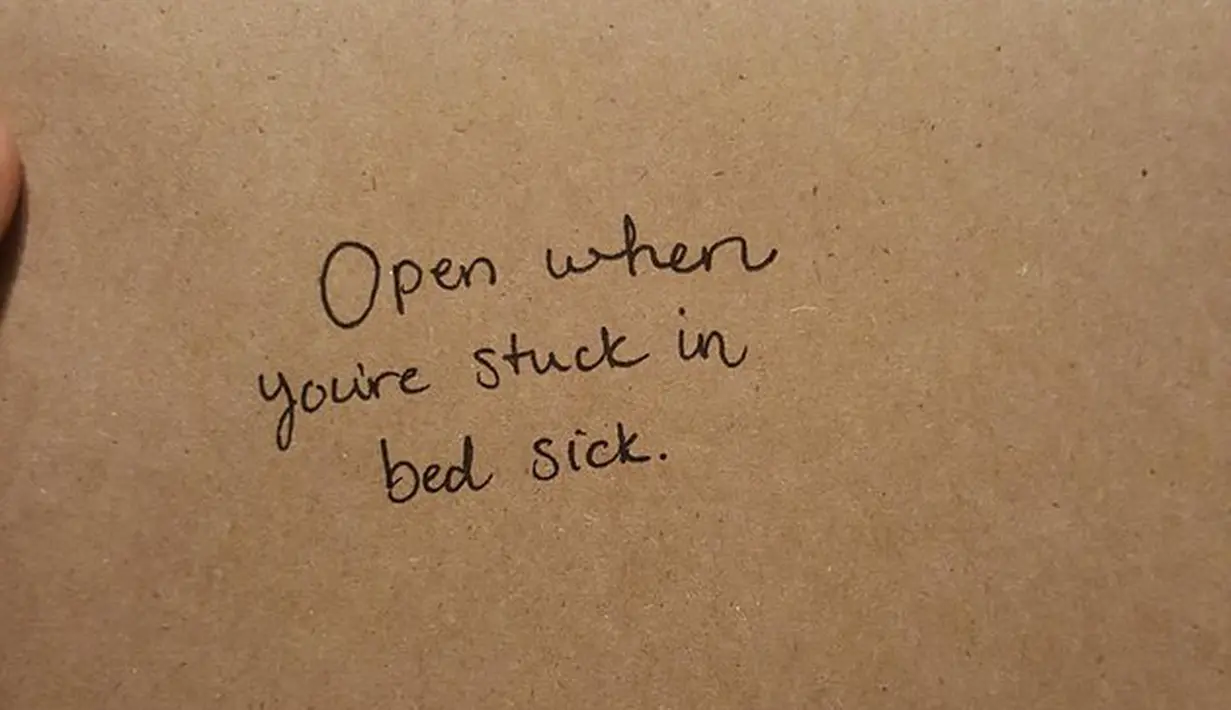 Open when
you're stuck in
bed sick.